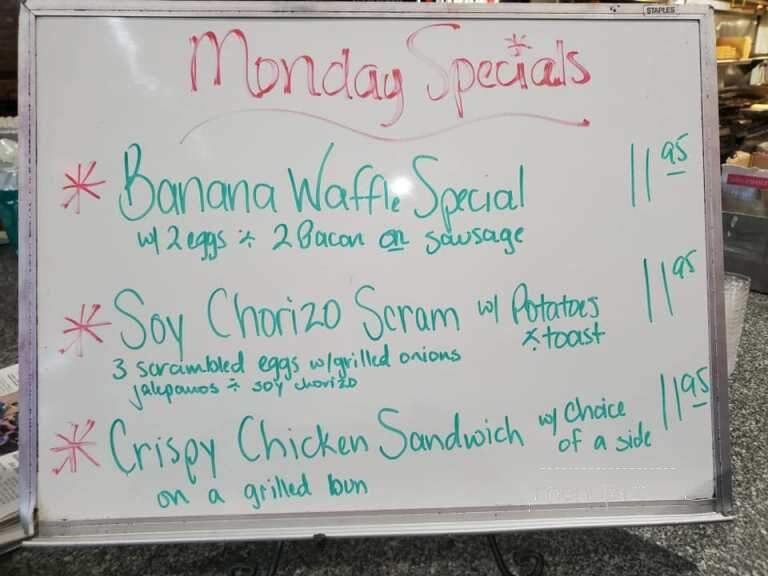 STAPLES
Monday Specials
* Banana Waffle Special 11 95
w/ 2 eggs ÷ 2 Bacon or sausage
* Soy Chorizo Scram w/ Potatoes 11 95
÷ toast
3 scrambled eggs w/grilled onions
jalepanos ÷ soy chorizo
* Crispy Chicken Sandwich w/ choice 11 95
of a side
on a grilled bun